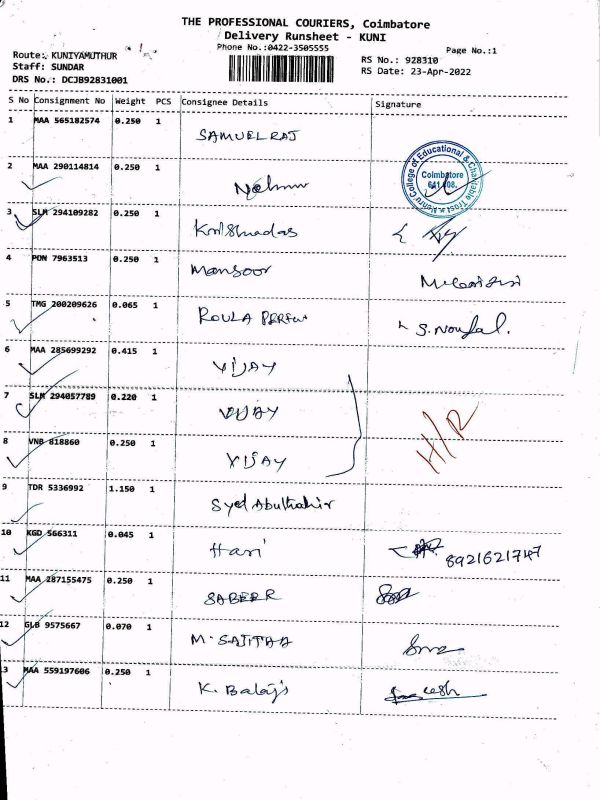 THE PROFESSIONAL COURIERS, Coimbatore
Delivery Runsheet - KUNI
Phone No.:0422-3505555
Page No.:1
Route: KUNIYAMUTHUR
Staff: SUNDAR
DRS No.: DCJB92831001
RS No.: 928310
RS Date: 23-Apr-2022
S No Consignment No Weight PCS Consignee Details Signature
1 MAA 565182574 0.250 1 SAMUELRAJ
2 MAA 290114814 0.250 1
College of Educational & Charitable Trust
Coimbatore
641 008.
3 SLM 294109282 0.250 1
4 PON 7963513 0.250 1 Mansoor
5 TMG 200209626 0.065 1 ROULA S. Noufal.
6 MAA 285699292 0.415 1 VIJAY
7 SLM 294057789 0.220 1 VIJAY
H/R
8 VNB 818860 0.250 1 VIJAY
9 TDR 5336992 1.150 1 Syed Abuthahir
10 KGD 566311 0.045 1 Hari 8921621747
11 MAA 287155475 0.250 1 SABEER
12 GLB 9575667 0.070 1 M.
3 MAA 559197606 0.250 1 K. Balaji